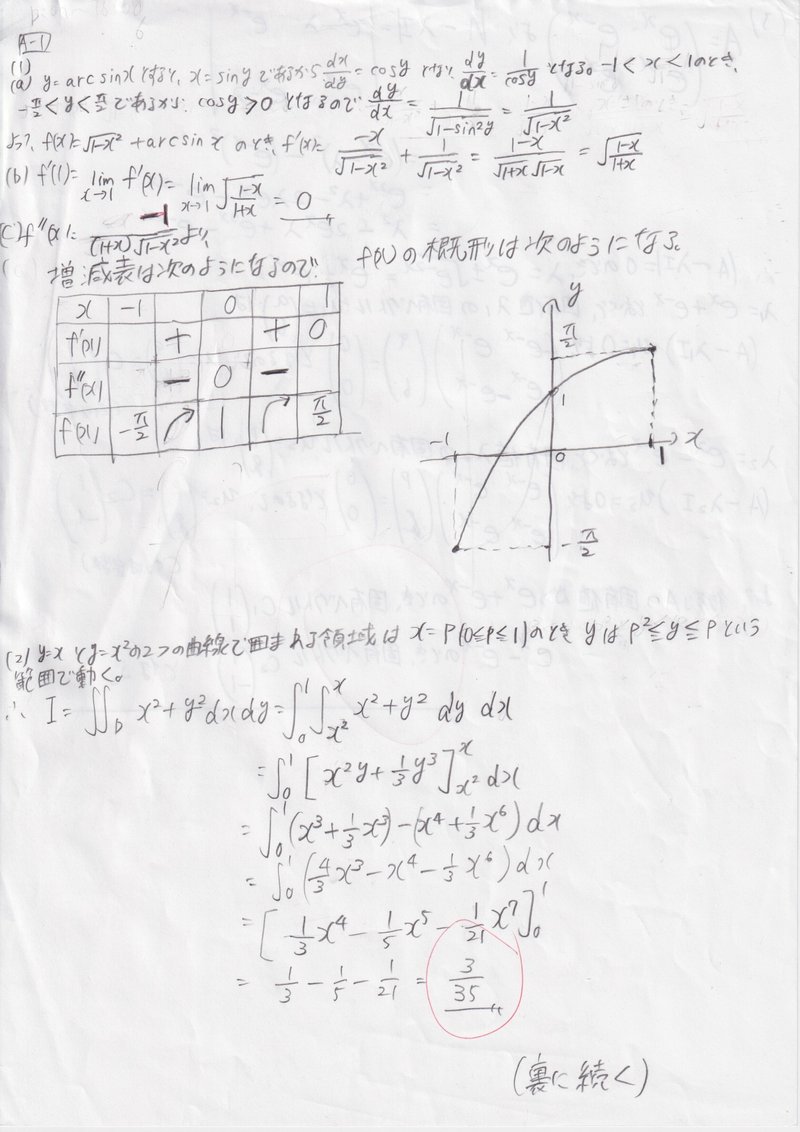 A-1
(1)
(a) y=arcsinxとすると、x=sinyであるからdx/dy=cosy よって、dy/dx=1/cosyとなる。-1<x<1のとき、
-π/2<y<π/2であるから、cosy>0となるのでdy/dx=1/√(1-sin²y)=1/√(1-x²)
よって、f(x)=√(1-x²)+arcsinxのとき、f'(x)=-x/√(1-x²)+1/√(1-x²)=(1-x)/(√(1+x)√(1-x))=√((1-x)/(1+x))
(b) f'(1)=lim x→1 f'(x)=lim x→1 √((1-x)/(1+x))=0
(c) f''(x)=-1/((1+x)√(1-x²))より、
増減表は次のようになるので、f(x)の概形は次のようになる。
x -1 0 1
f'(x) + + 0
f''(x) - 0 -
f(x) -π/2 1 π/2
y
π/2
1
-1 0 1 x
-π/2
(2) y=xとy=x²の2つの曲線で囲まれる領域はx=P(0≦P≦1)のときyはP²≦y≦Pという
範囲で動く。
∴ I=∬_D x²+y²dxdy=∫₀¹∫_{x²}^{x} x²+y² dy dx
=∫₀¹[x²y+1/3y³]_{x²}^{x}dx
=∫₀¹(x³+1/3x³)-(x⁴+1/3x⁶)dx
=∫₀¹(4/3x³-x⁴-1/3x⁶)dx
=[1/3x⁴-1/5x⁵-1/21x⁷]₀¹
=1/3-1/5-1/21=3/35
(裏に続く)